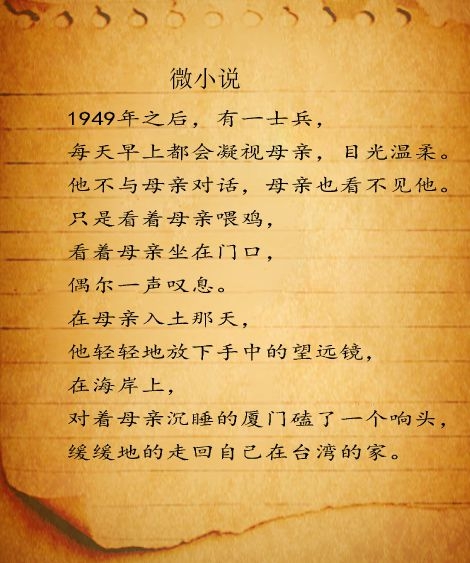 微小说
1949年之后，有一士兵，
每天早上都会凝视母亲，目光温柔。
他不与母亲对话，母亲也看不见他。
只是看着母亲喂鸡，
看着母亲坐在门口，
偶尔一声叹息。
在母亲入土那天，
他轻轻地放下手中的望远镜，
在海岸上，
对着母亲沉睡的厦门磕了一个响头，
缓缓地的走回自己在台湾的家。